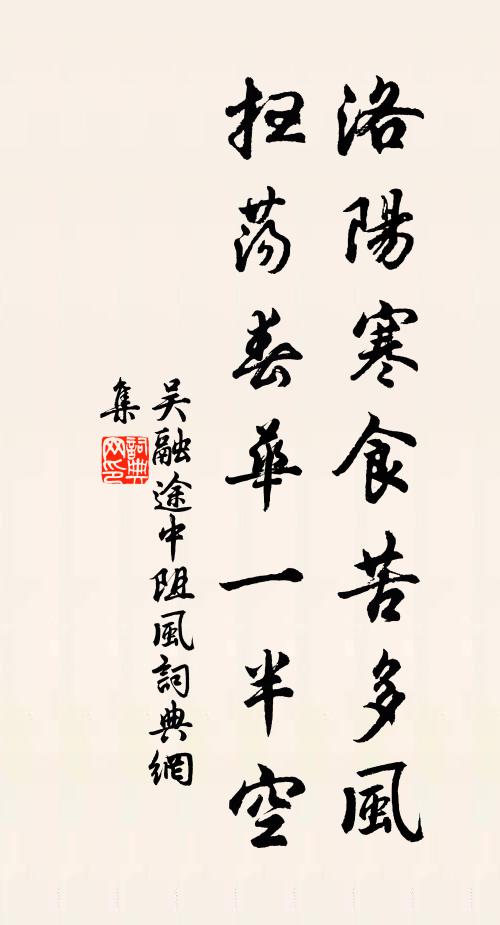 洛陽寒食苦多風
掃蕩春華一半空
吳融途中阻風詞典網
集
詞典網印